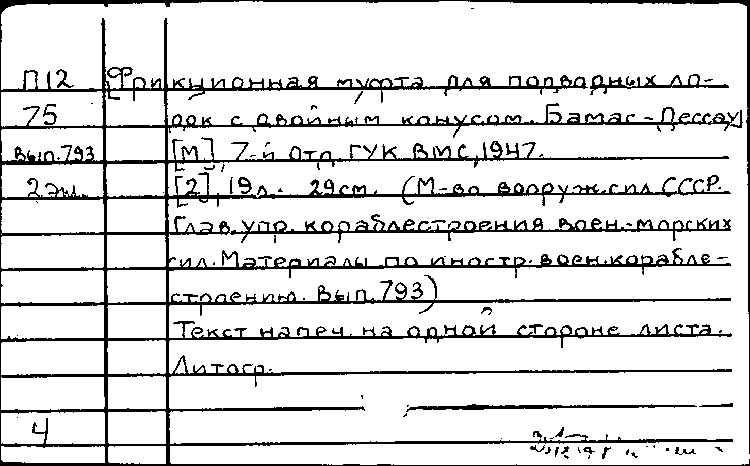 П12 [Фрикционная муфта для подводных ло-
75 док с двойным конусом. Бамаг-Дессау]
Вып.793 [М], 7-й отд. ГУК ВМС, 1947.
2 экз. [2], 19л. 29см. (М-во вооруж. сил СССР.
Глав. упр. кораблестроения воен.-морских
сил. Материалы по иностр. воен. корабле-
строению. Вып. 793)
Текст напеч. на одной стороне листа.
Литогр.
4